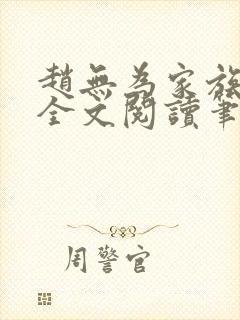 趙無為家族
全文閱讀筆
周警官